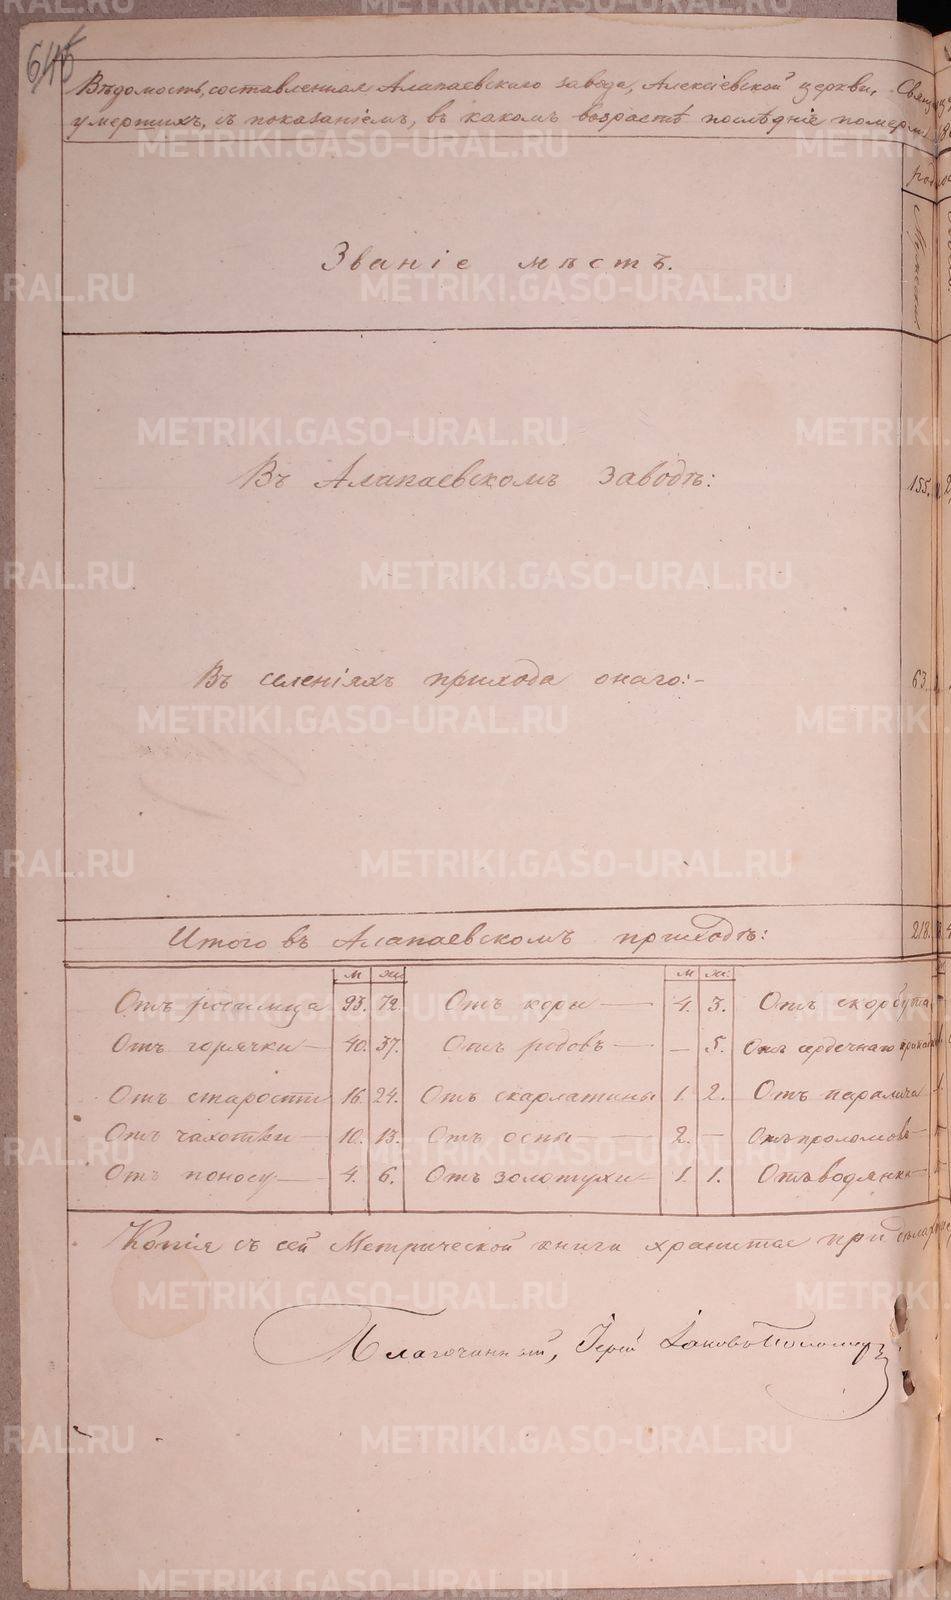 645
Вѣдомость, составленная Алапаевскаго завода, Алексіевской церкви, Свящ
умершихъ, съ показаніемъ, въ какомъ возрастѣ послѣдніе померли
Званіе мѣстъ.
Въ Алапаевскомъ заводѣ: 155.
Въ селеніяхъ прихода онаго:- 63.
Итого въ Алапаевскомъ приходѣ: 218.
м жи: м жи:
Отъ родимца 93. 72. Отъ кори — 4. 3. Отъ скорбута
Отъ горячки — 40. 37. Отъ родовъ — — 5. Отъ сердечнаго
Отъ старости 16. 24. Отъ скарлатины 1. 2. Отъ паралича
Отъ чахотки — 10. 13. Отъ оспы — 2. — Отъ
Отъ поносу — 4. 6. Отъ золотухи — 1. 1. Отъ водянки
Копія съ сей Метрической книги хранится при
Благочинный, Іерей Іаковъ
METRIKI.GASO-URAL.RU